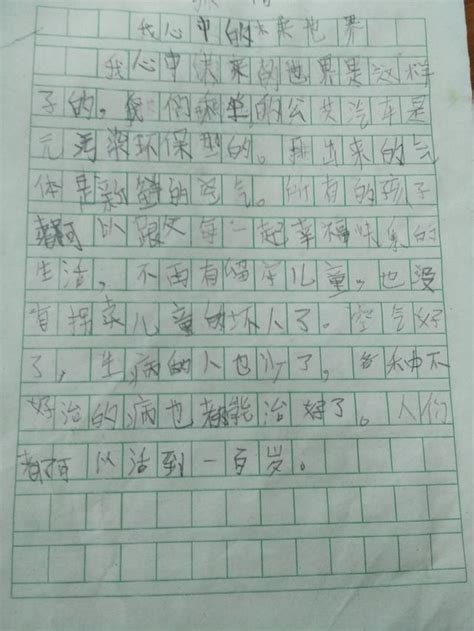 我心中的未来世界
我心中未来的世界是这样
子的，我们乘坐的公共汽车是
元污染环保型的。排出来的气
体是新鲜的空气。所有的孩子
都可以跟父母一起幸福快乐的
生活，不再有留守儿童，也没
有拐卖儿童的坏人了。空气好
了，生病的人也少了，各种不
好治的病也都能治好了。人们
都可以活到一百岁。